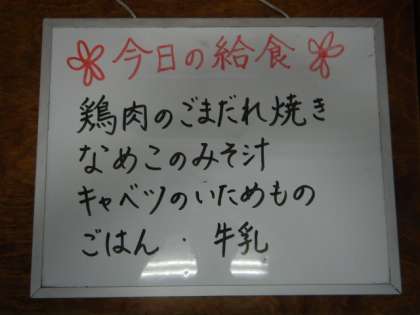 今日の給食
鶏肉のごまだれ焼き
なめこのみそ汁
キャベツのいためもの
ごはん・牛乳